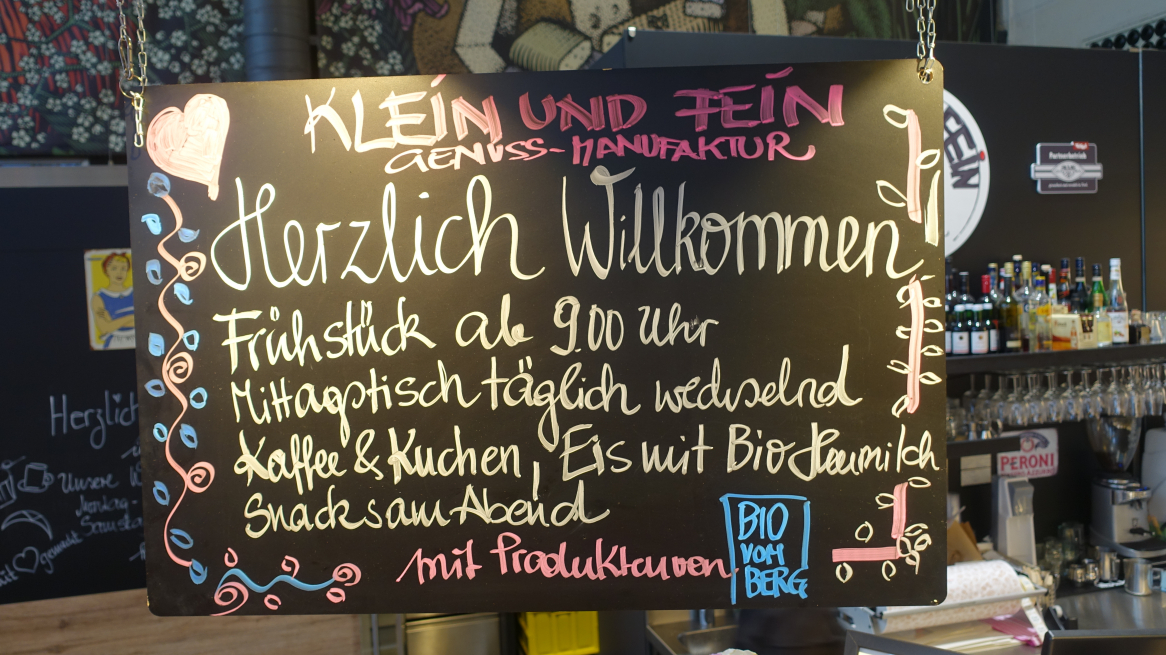 KLEIN UND FEIN
GENUSS-MANUFAKTUR
Herzlich Willkommen
Frühstück ab 9.00 Uhr
Mittagstisch täglich wechselnd
Kaffee & Kuchen, Eis mit Bio Heumilch
Snacks am Abend
mit Produkten von
BIO
VOM
BERG
FEIN
Partnerbetrieb
PERONI
Herzlich
Unsere
gemacht